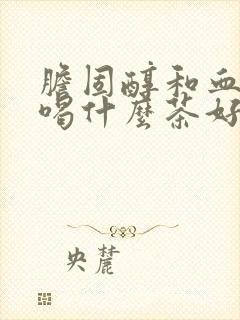 膽固醇和血
喝什麼茶好
央麓